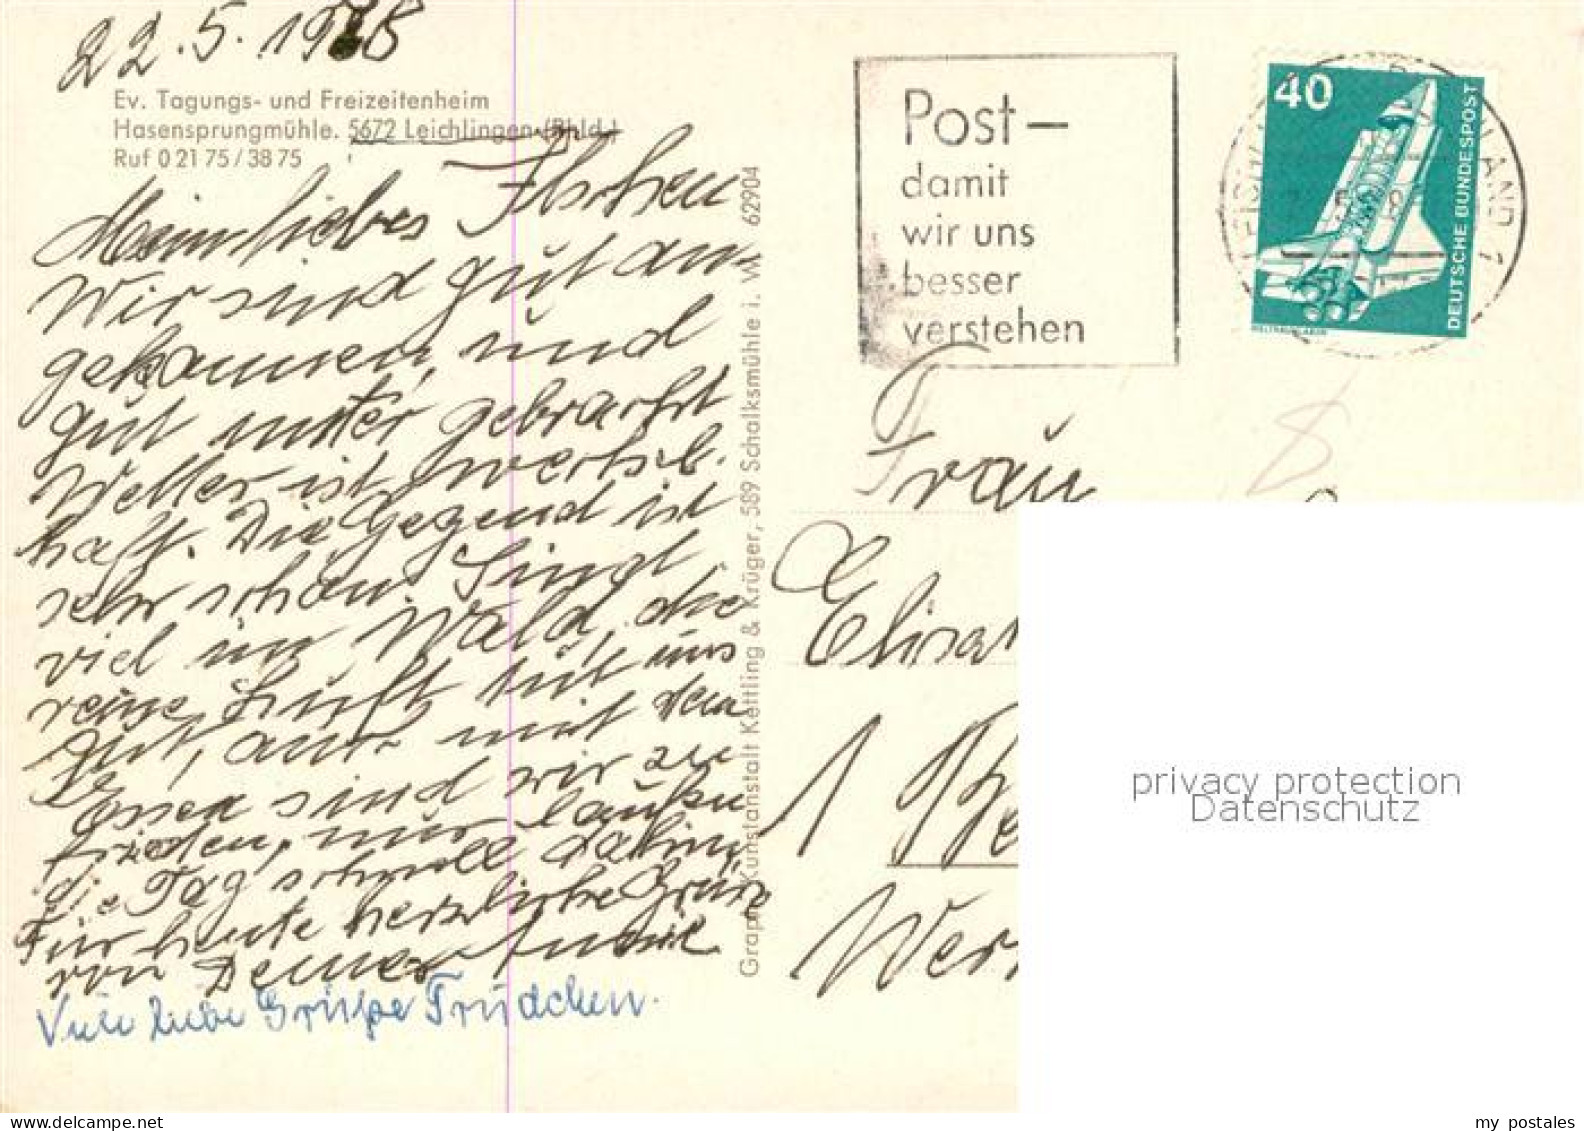 22.5.1978
Ev. Tagungs- und Freizeitenheim
Hasensprungmühle. 5672 Leichlingen (Rhld.)
Ruf 0 21 75 / 38 75
Mein liebes
Wir sind gut an-
gekommen, und
gut unter gebracht
Wetter ist
haft. Die Gegend ist
sehr schön Sind
viel im Wald, die
reine Luft tut uns
gut, auch mit dem
Essen sind wir zu
frieden, nur laufen
die Tag schnell dahin
Für heute herzliche Grüße
von Deiner
Viele liebe Grüße Trüdchen.
Graph. Kunstanstalt Kettling & Krüger, 589 Schalksmühle i. W. 62904
Post –
damit
wir uns
besser
verstehen
40
DEUTSCHE BUNDESPOST
Frau
Elisa
1
Wer
privacy protection
Datenschutz
my postales